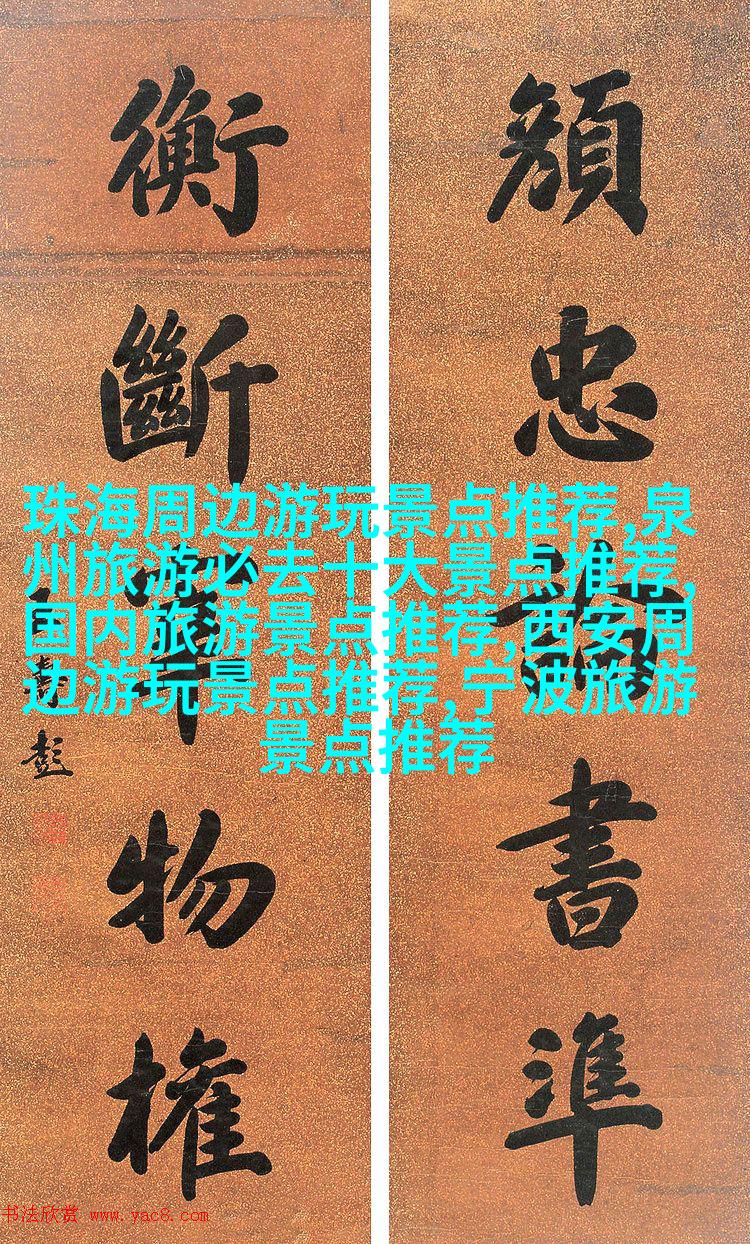 顏忠書準
衡斷物權
壽彭
珠海周边游玩景点推荐,泉
州旅游必去十大景点推荐,
国内旅游景点推荐,西安周
边游玩景点推荐,宁波旅游
景点推荐
书法欣赏 www.yac8.com